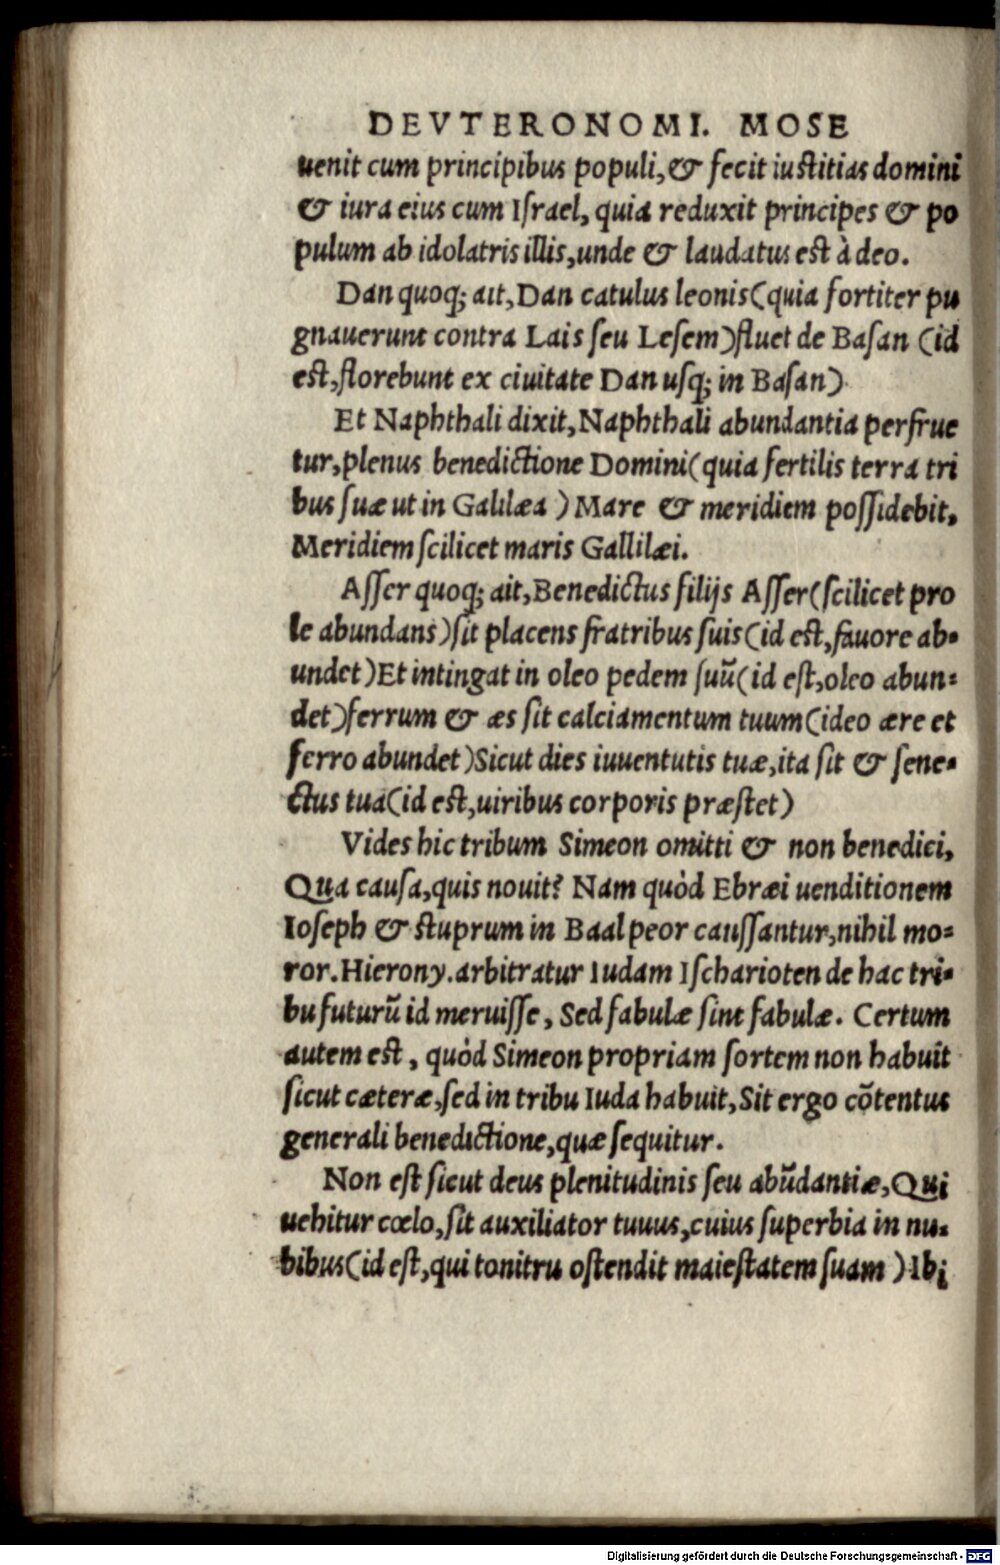 DEVTERONOMI. MOSE
uenit cum principibus populi, & fecit iustitias domini
& iura eius cum Israel, quia reduxit principes & po
pulum ab idolatris illis, unde & laudatus est à deo.
Dan quoq; ait, Dan catulus leonis (quia fortiter pu
gnauerunt contra Lais seu Lesem) fluet de Basan (id
est, florebunt ex ciuitate Dan usq; in Basan)
Et Naphthali dixit, Naphthali abundantia perfrue
tur, plenus benedictione Domini (quia fertilis terra tri
bus suæ ut in Galilæa) Mare & meridiem possidebit,
Meridiem scilicet maris Gallilæi.
Asser quoq; ait, Benedictus filijs Asser (scilicet pro
le abundans) sit placens fratribus suis (id est, fauore ab-
undet) Et intingat in oleo pedem suũ (id est, oleo abun-
det) ferrum & æs sit calciamentum tuum (ideo ære et
ferro abundet) Sicut dies iuuentutis tuæ, ita sit & sene-
ctus tua (id est, uiribus corporis præstet)
Vides hic tribum Simeon omitti & non benedici,
Qua causa, quis nouit? Nam quòd Ebræi uenditionem
Ioseph & stuprum in Baal peor caussantur, nihil mo-
ror. Hierony. arbitratur Iudam Ischarioten de hac tri-
bu futurũ id meruisse, Sed fabulæ sint fabulæ. Certum
autem est, quòd Simeon propriam sortem non habuit
sicut cæteræ, sed in tribu Iuda habuit, Sit ergo cõtentus
generali benedictione, quæ sequitur.
Non est sicut deus plenitudinis seu abũdantiæ, Qui
uehitur cœlo, sit auxiliator tuuus, cuius superbia in nu-
bibus (id est, qui tonitru ostendit maiestatem suam) Ibi
Digitalisierung gefördert durch die Deutsche Forschungsgemeinschaft - DFG